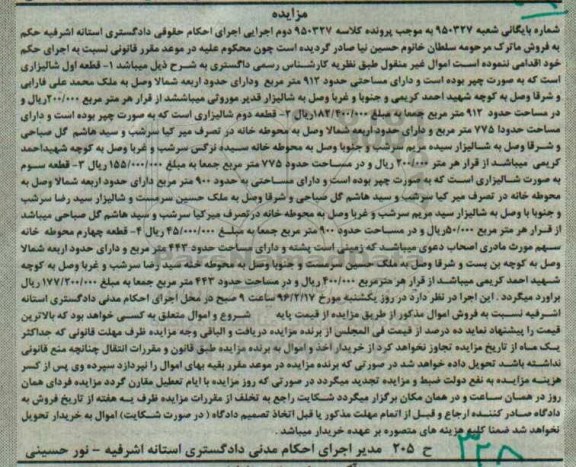 مزایده
شماره بایگانی شعبه ۹۵۰۳۲۷ به موجب پرونده کلاسه ۹۵۰۳۲۷ دوم اجرایی اجرای احکام حقوقی دادگستری استانه اشرفیه حکم
به فروش ماترک مرحومه سلطان خانوم حسین نیا صادر گردیده است چون محکوم علیه در موعد مقرر قانونی نسبت به اجرای حکم
خود اقدامی ننموده است اموال غیر منقول طبق نظریه کارشناس رسمی داگستری به شرح ذیل میباشد ۱- قطعه اول شالیزاری
است که به صورت چپر بوده است و دارای مساحتی حدود ۹۱۲ متر مربع ودارای حدود اربعه شمالا وصل به ملک محمد علی فارابی
و شرقا وصل به کوچه شهید احمد کریمی و جنوبا و غربا وصل به شالیزار قدیر موروثی میباششد از قرار هر متر مربع ۲۰۰/۰۰۰ریال و
در مساحت حدود ۹۱۲ متر مربع جمعا به مبلغ ۱۸۲/۴۰۰/۰۰۰ریال ۲- قطعه دوم شالیزاری است که به صورت چپر بوده است و دارای
مساحت حدودا ۷۷۵ متر مربع و دارای حدود اربعه شمالا وصل به محوطه خانه در تصرف میر کیا سرشب و سید هاشم گل صباحی
و شرقا وصل به شالیزار سیده مریم سرشب و جنوبا وصل به محوطه خانه سیده نرگس سرشب و غربا وصل به کوچه شهیداحمد
کریمی میباشد از قرار هر متر ۲۰۰/۰۰۰ ریال و در مساحت حدود ۷۷۵ متر مربع جمعا به مبلغ ۱۵۵/۰۰۰/۰۰۰ ریال ۳- قطعه سوم
به صورت شالیزاری است که به صورت چپر بوده است و دارای مساحتی به حدود ۹۰۰ متر مربع دارای حدود اربعه شمالا وصل به
محوطه خانه در تصرف میر کیا سرشب و سید هاشم گل صباحی و شرقا وصل به ملک حسین سرمست و شالیزار سید رضا سرشب
و جنوبا با وصل به شالیزار سید مریم سرشب و غربا وصل به محوطه خانه درتصرف میرکیا سرشب و سید هاشم گل صباحی میباشد
از قرار هر متر مربع ۵۰/۰۰۰ریال و در مساحت حدود ۹۰۰ متر مربع جمعا به مبلغ ۴۵/۰۰۰/۰۰۰ ریال ۴- قطعه چهارم محوطه خانه
سهم مورث مادری اصحاب دعوی میباشد که زمینی است پشته و دارای مساحت حدود ۴۴۳ متر مربع و دارای حدود اربعه شمالا
وصل به کوچه بن بست و شرقا وصل به ملک حسین سرمست و جنوبا وصل به محوطه خنه سید رضا سرشب و غربا وصل به کوچه
شهید احمد کریمی میباشد از قرار هر مترمربع ۴۰۰/۰۰۰ ریال و در مساحت حدود ۴۴۳ متر مربع جمعا به مبلغ ۱۷۷/۲۰۰/۰۰۰ ریال
براورد میگردد . این اجرا در نظر دارد در روز یکشنبه مورخ ۹۶/۲/۱۷ ساعت ۹ صبح در محل اجرای احکام مدنی دادگستری استانه
اشرفیه نسبت به فروش اموال مذکور از طریق مزایده از قیمت پایه شروع و اموال متعلق به کسی خواهد بود که بالاترین
قیمت را پیشنهاد نماید ده درصد از قیمت فی المجلس از برنده مزایده دریافت و الباقی وجه مزایده ظرف مهلت قانونی که حداکثر
یک ماه از تاریخ مزایده تجاوز نخواهد کرد از خریدار اخذ و اموال به برنده مزایده طبق قانون و مقررات انتقال چنانچه منع قانونی
نداشته باشد تحویل داده خواهد شد در صورتی که برنده مزایده در موعد مقرر بقیه بهای اموال را نپردازد سپرده وی پس از کسر
هزینه مزایده به نفع دولت ضبط و مزایده تجدید میگردد در صورتی که روز مزایده با ایام تعطیل مقارن گردد مزایده فردای همان
روز در همان ساعت و در همان مکان برگزار میگردد شکایت راجع به تخلف از مقررات مزایده ظرف یه هفته از تاریخ فروش به
دادگاه صادر کننده ارجاع و قبل از اتمام مهلت مذکور یا قبل اتخاذ تصمیم دادگاه ( در صورت شکایت) اموال به خریدار تحویل
نخواهد شد ضمنا کلیه هزینه های متصوره بر عهده خریدار میباشد .
ح ۲۰۵ مدیر اجرای احکام مدنی دادگستری استانه اشرفیه - نور حسینی
۳۲۸